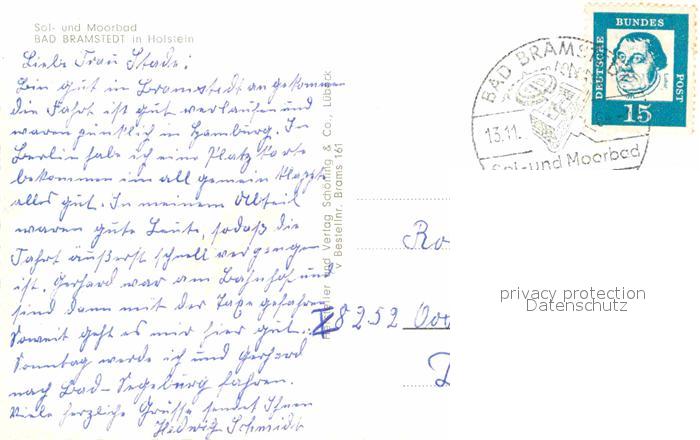 Sol- und Moorbad
BAD BRAMSTEDT in Holstein
Liebe Frau Stade!
Bin gut in Bramstedt angekommen
die Fahrt ist gut verlaufen und
waren pünklich in Hamburg. In
Berlin habe ich eine Platzkarte
bekommen im all gemein klappte
alles gut. In meinem Abteil
waren gute Leute, sodaß die
Fahrt äußerst schnell vergangen
ist. Gerhard war am Bahnhof und
sind dann mit der Taxe gefahren
Soweit geht es mir hier gut.
Sonntag werde ich und Gerhard
nach Bad-Segeburg fahren.
Viele herzliche Grüsse sendet Ihnen
Hedwig Schmidt
Hersteller und Verlag Schöning & Co., Lübeck
Bestellnr. Brams 161
BAD BRAMSTEDT
13.11.
Sol-und Moorbad
DEUTSCHE
BUNDES
POST
Luther
15
Ro
8252
privacy protection
Datenschutz